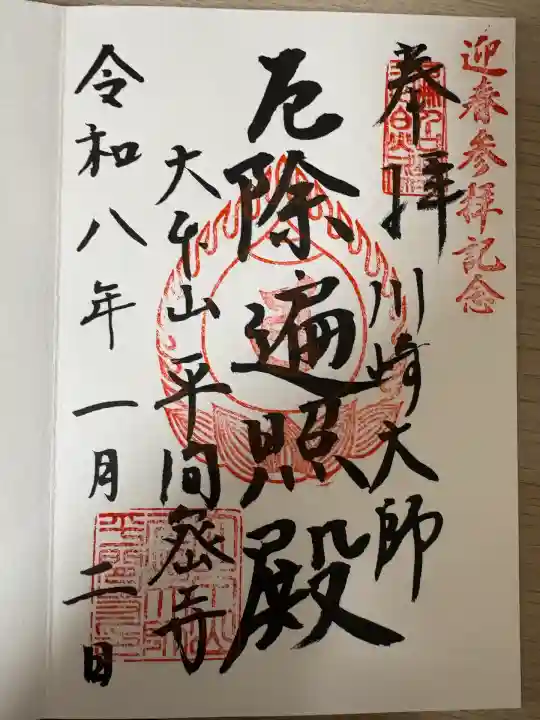 迎春参拝記念
奉拝
川崎大師
厄除遍照殿
大本山平間寺
令和八年一月二日